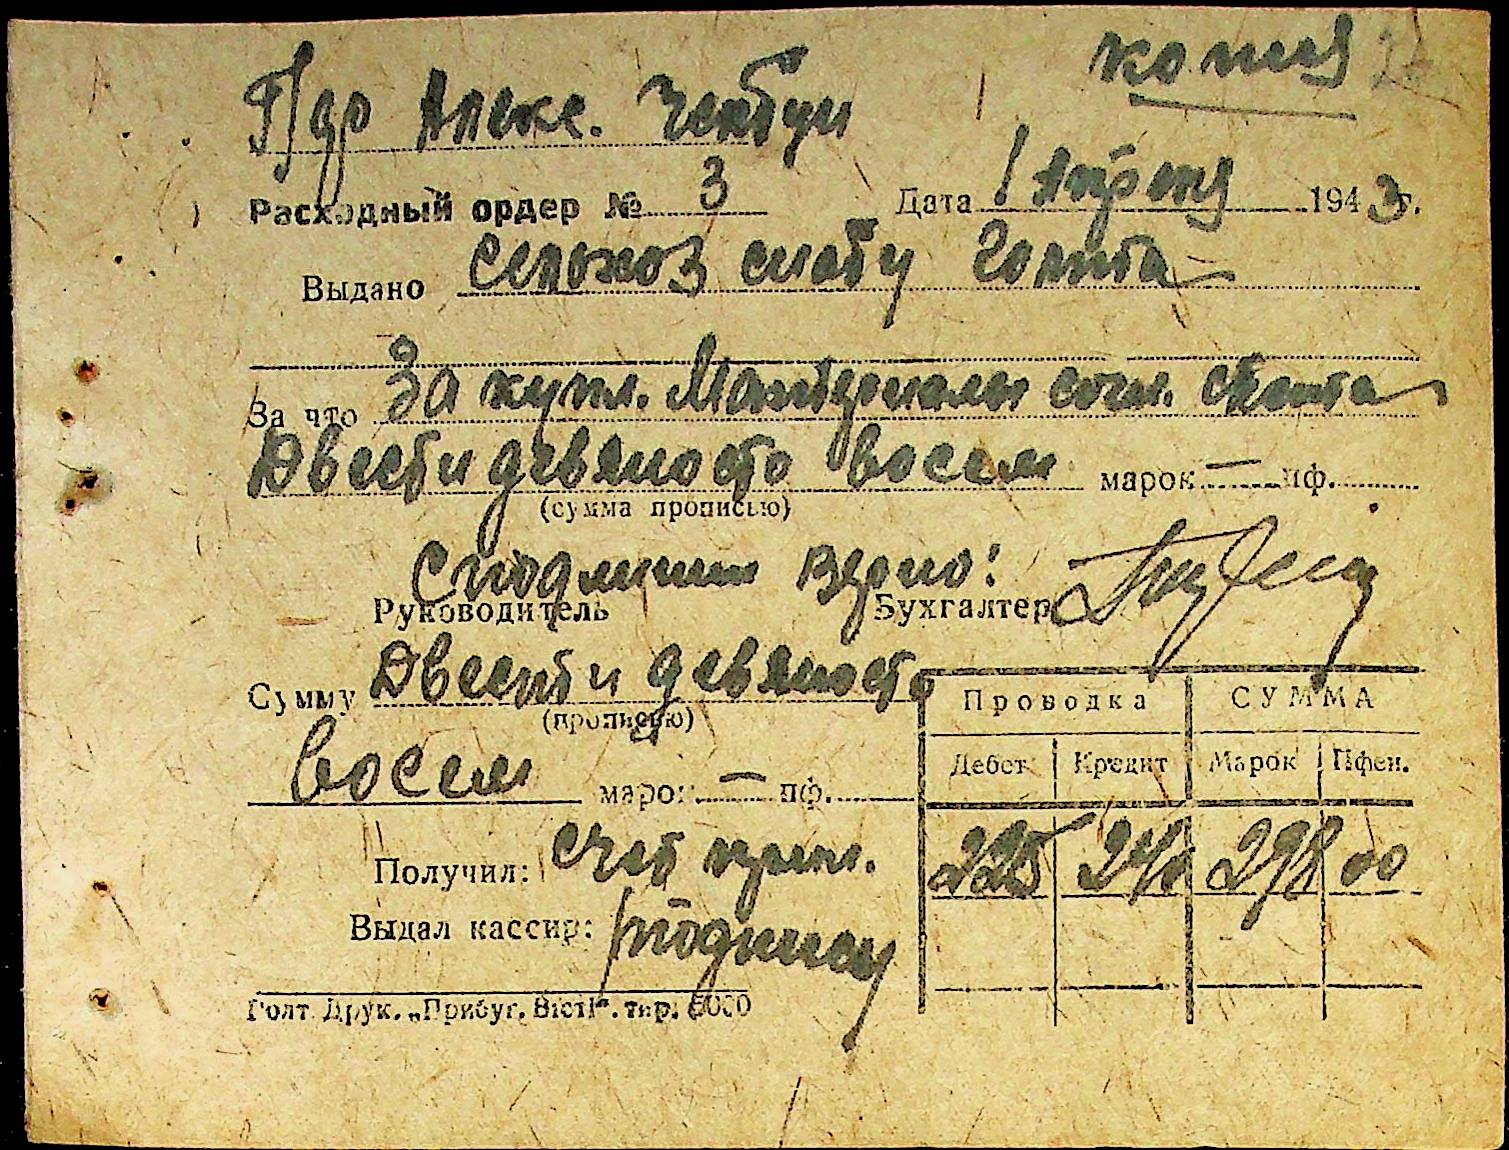 копия
Алекс.
Расходный ордер № 3 Дата 1 Апреля 1943 г.
Выдано сельхоз снабу Голта
За что За купл. Материалы согл. счета
Двести девяносто восем марок — пф.
(сумма прописью)
С подлиным верно!
Руководитель Бухгалтер
Сумму Двести девяносто
(прописью)
восем марок — пф.
Проводка СУММА
Дебет Кредит Марок Пфен.
225 240 298 00
Получил: счет прил.
Выдал кассир: подпись
Голт. Друк. „Прибуг. Вісті". тир. 5000